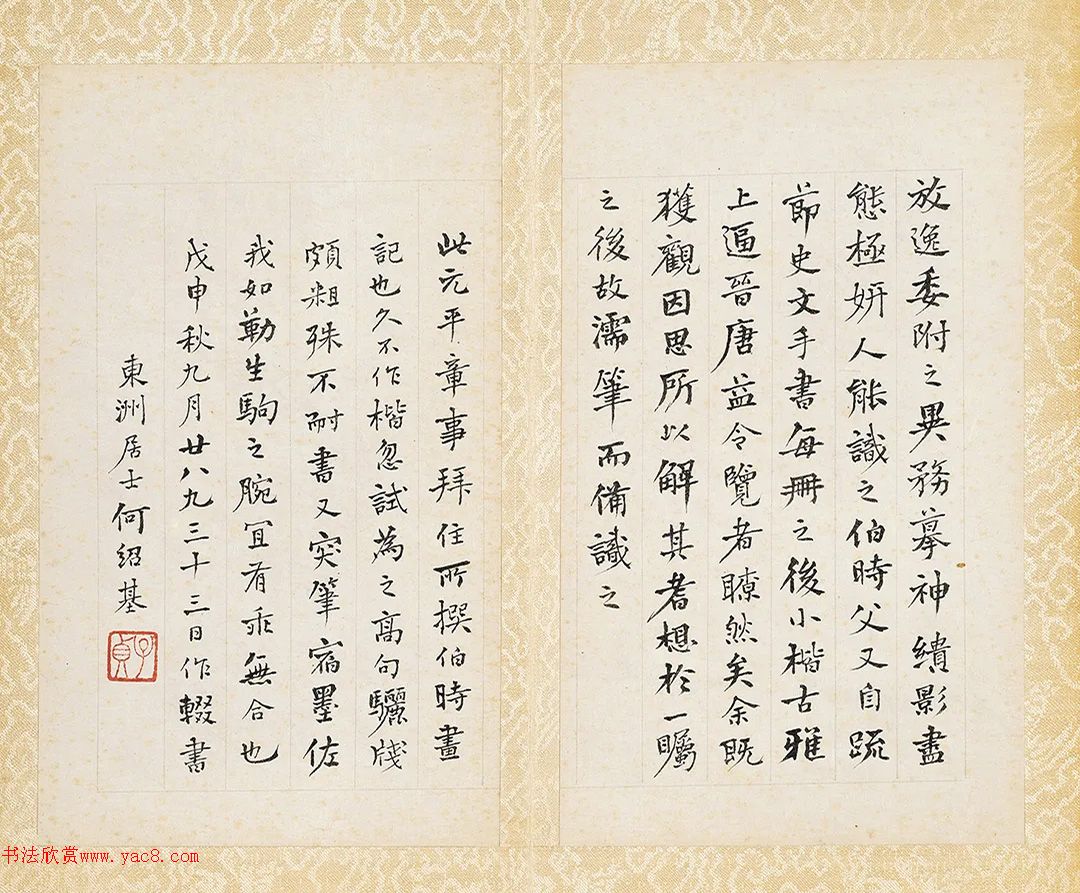 放逸委附之異務摹神繢影盡
態極妍人能識之伯時父又自疏
節史文手書每冊之後小楷古雅
上逼晉唐益令覽者瞭然矣余既
獲觀因思所以解其耆想於一矚
之後故濡筆而備識之
此元平章事拜住所撰伯時畫
記也久不作楷忽試為之高句驪牋
頗粗殊不耐書又突筆宿墨佐
我如勒生駒之腕宜有乖無合也
戊申秋九月廿八九三十三日作輟書
東洲居士何紹基
子貞
书法欣赏www.yac8.com